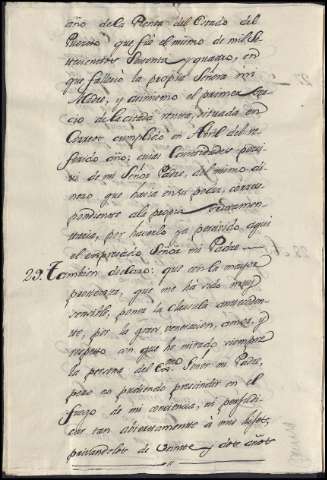 año de la Renta del Estado del
Puerto que fue el mismo de mil se
tecientos setenta y quatro, en
que falleció la propia Señora mi
Madre, y asimismo el primer ter
cio de la citada renta, situada en
Correos cumplido en Abril del re
ferido año; cuias Cantidades perci
ví de mi Señor Padre, del mismo di
nero que havia en su poder, corres
pondiente a la propia Testamen
taria, por haverlo ya percivido aqui
el expresado Señor mi Padre
29. Tambien declaro: que con la mayor
prudencia, que me há sido muy
sensible, pongo la Clausula anteceden
te, por la gran veneracion, amor, y
respeto con que he mirado siempre
la persona del Exmo Señor mi Padre,
pero no pudiendo prescindir en el
fuero de mi conciencia, ni perjudi
car tan abiertamente á mis hijos,
privandoles de veinte y siete años